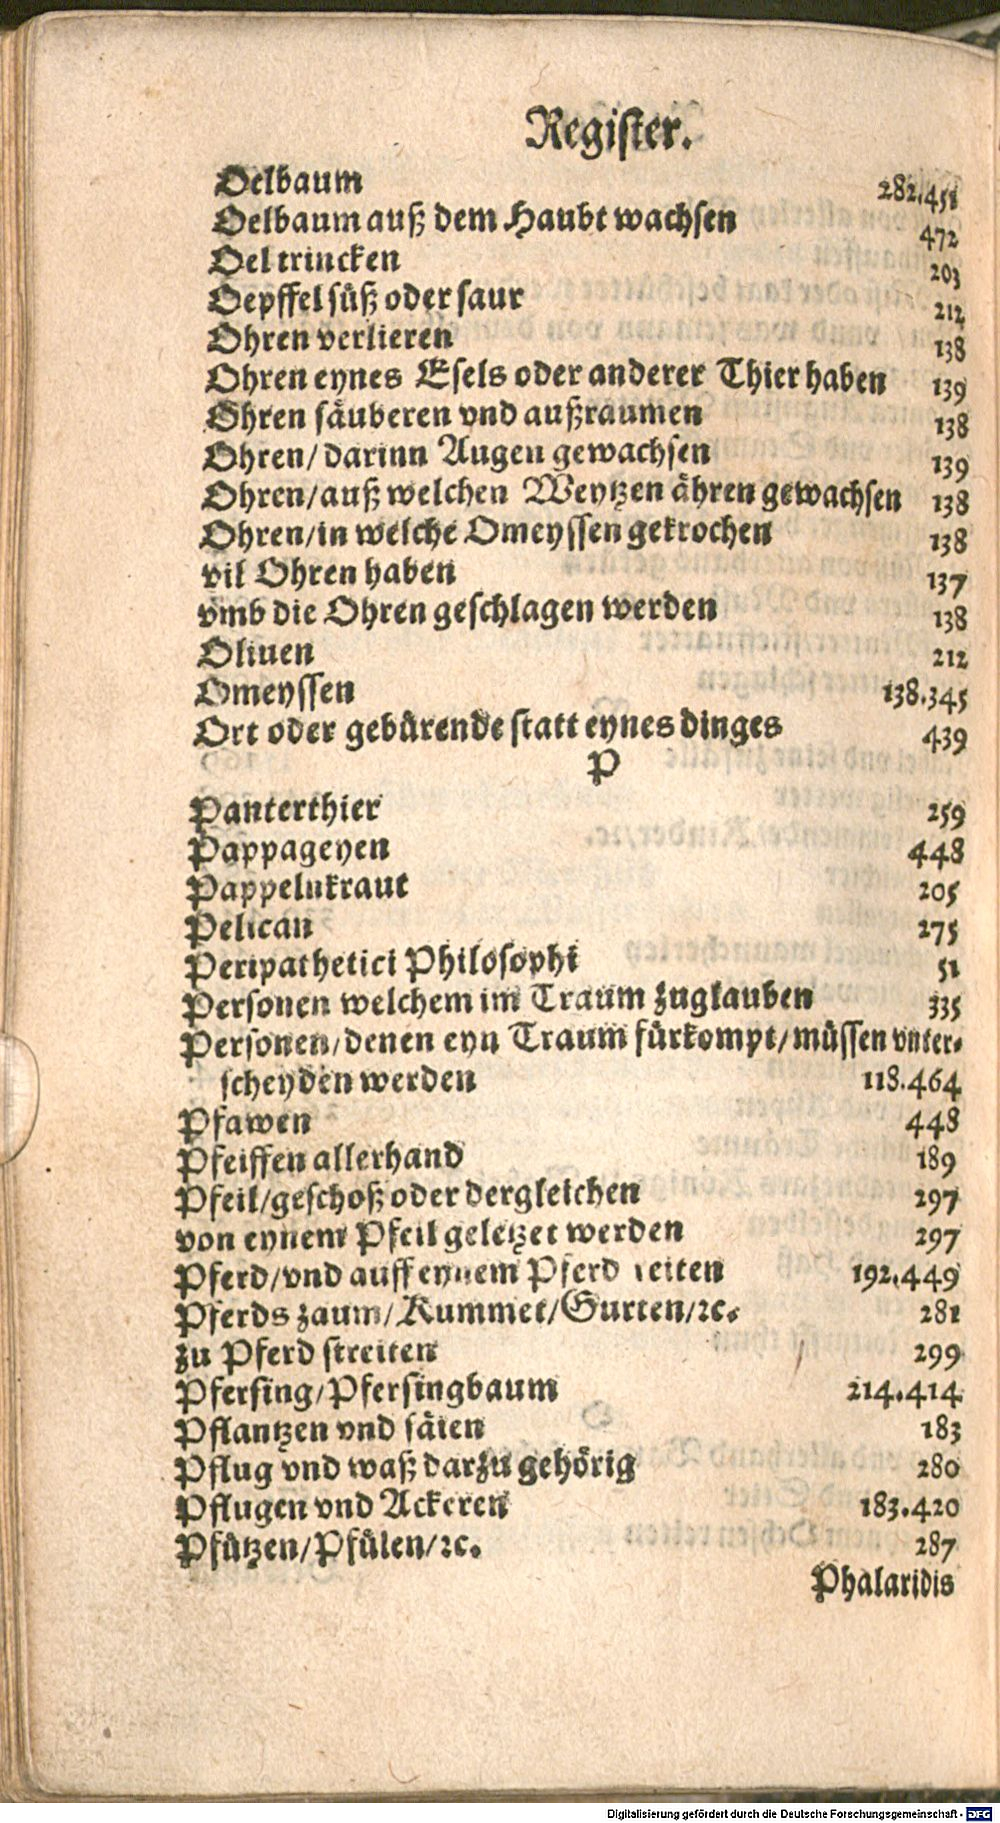 Register.
Oelbaum 282.451
Oelbaum auß dem Haubt wachsen 472
Oel trincken 203
Oepffel süß oder saur 212
Ohren verlieren 138
Ohren eynes Esels oder anderer Thier haben 139
Ohren säuberen vnd außraumen 138
Ohren/ darinn Augen gewachsen 139
Ohren/auß welchen Weytzen ähren gewachsen 138
Ohren/in welche Omeyssen gekrochen 138
vil Ohren haben 137
vmb die Ohren geschlagen werden 138
Oliuen 212
Omeyssen 138.345
Ort oder gebürende statt eynes dinges 439
P
Panterthier 259
Pappageyen 448
Pappelnkraut 205
Pelican 275
Peripathetici Philosophi 51
Personen welchem im Traum zuglauben 335
Personen/denen eyn Traum fürkompt/müssen vnter-
scheyden werden 118.464
Pfawen 448
Pfeiffen allerhand 189
Pfeil/geschoß oder dergleichen 297
von eynem Pfeil geletzet werden 297
Pferd/vnd auff eynem Pferd reiten 192.449
Pferds zaum/Kummet/Gurten/ꝛc. 281
zu Pferd streiten 299
Pfersing/Pfersingbaum 214.414
Pflantzen vnd säien 183
Pflug vnd waß darzu gehörig 280
Pflugen vnd Ackeren 183.420
Pfützen/Pfülen/ꝛc. 287
Phalaridis
Digitalisierung gefördert durch die Deutsche Forschungsgemeinschaft - DFG